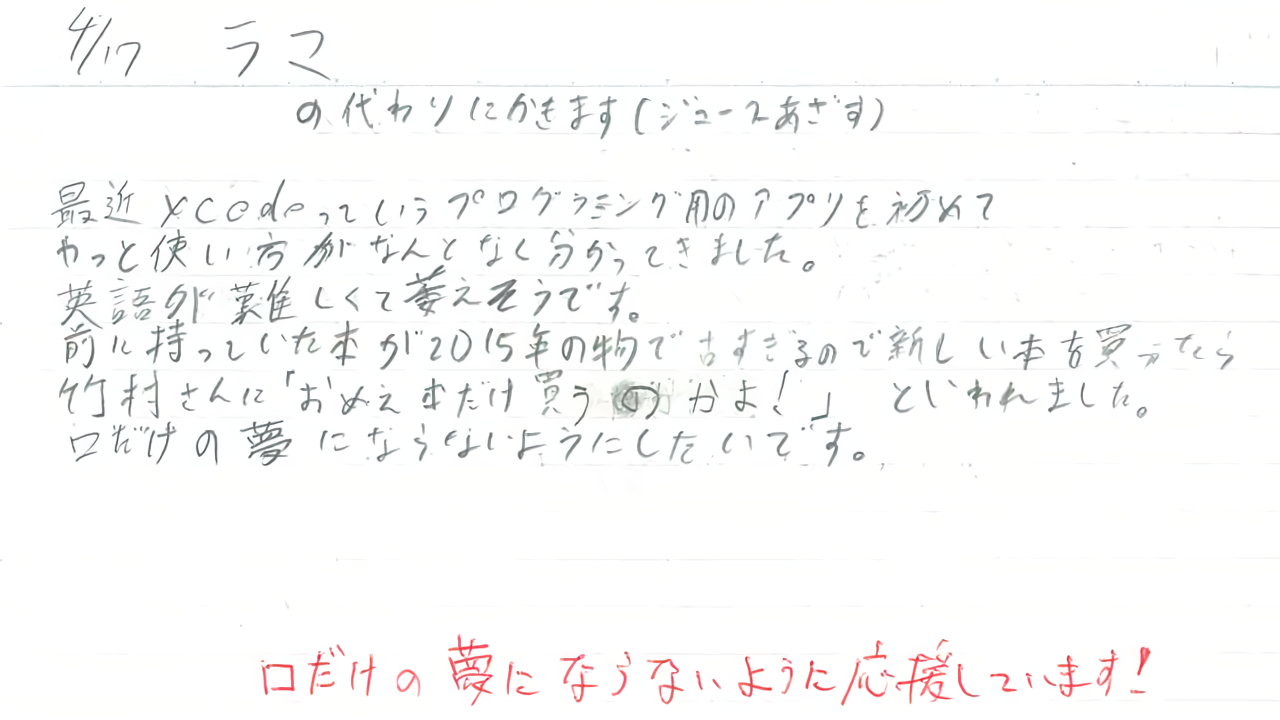 4/17 ラマ
の代わりにかきます(ジュースあざす)
最近xcodeっていうプログラミング用のアプリを初めて
やっと使い方がなんとなく分かってきました。
英語が難しくて萎えそうです。
前に持っていた本が2015年の物で古すぎるので新しい本を買ったら
竹村さんに「おめえ本だけ買うのかよ!」 といわれました。
口だけの夢にならないようにしたいです。
口だけの夢にならないように応援しています!